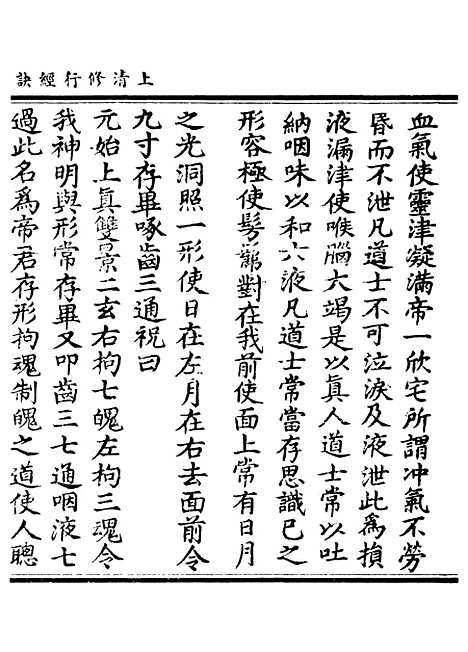 上清修行經訣
血氣使靈津凝滿帝一欣宅所謂冲氣不勞
昏而不泄凡道士不可泣淚及液泄此為損
液漏津使喉腦六竭是以真人道士常以吐
納咽味以和六液凡道士常當存思識己之
形容極使髣髴對在我前使面上常有日月
之光洞照一形使日在左月在右去面前令
九寸存畢啄齒三通祝曰
元始上真雙景二玄右拘七魄左拘三魂令
我神明與形常存畢又叩齒三七通咽液七
過此名為帝君存形拘魂制魄之道使人聰